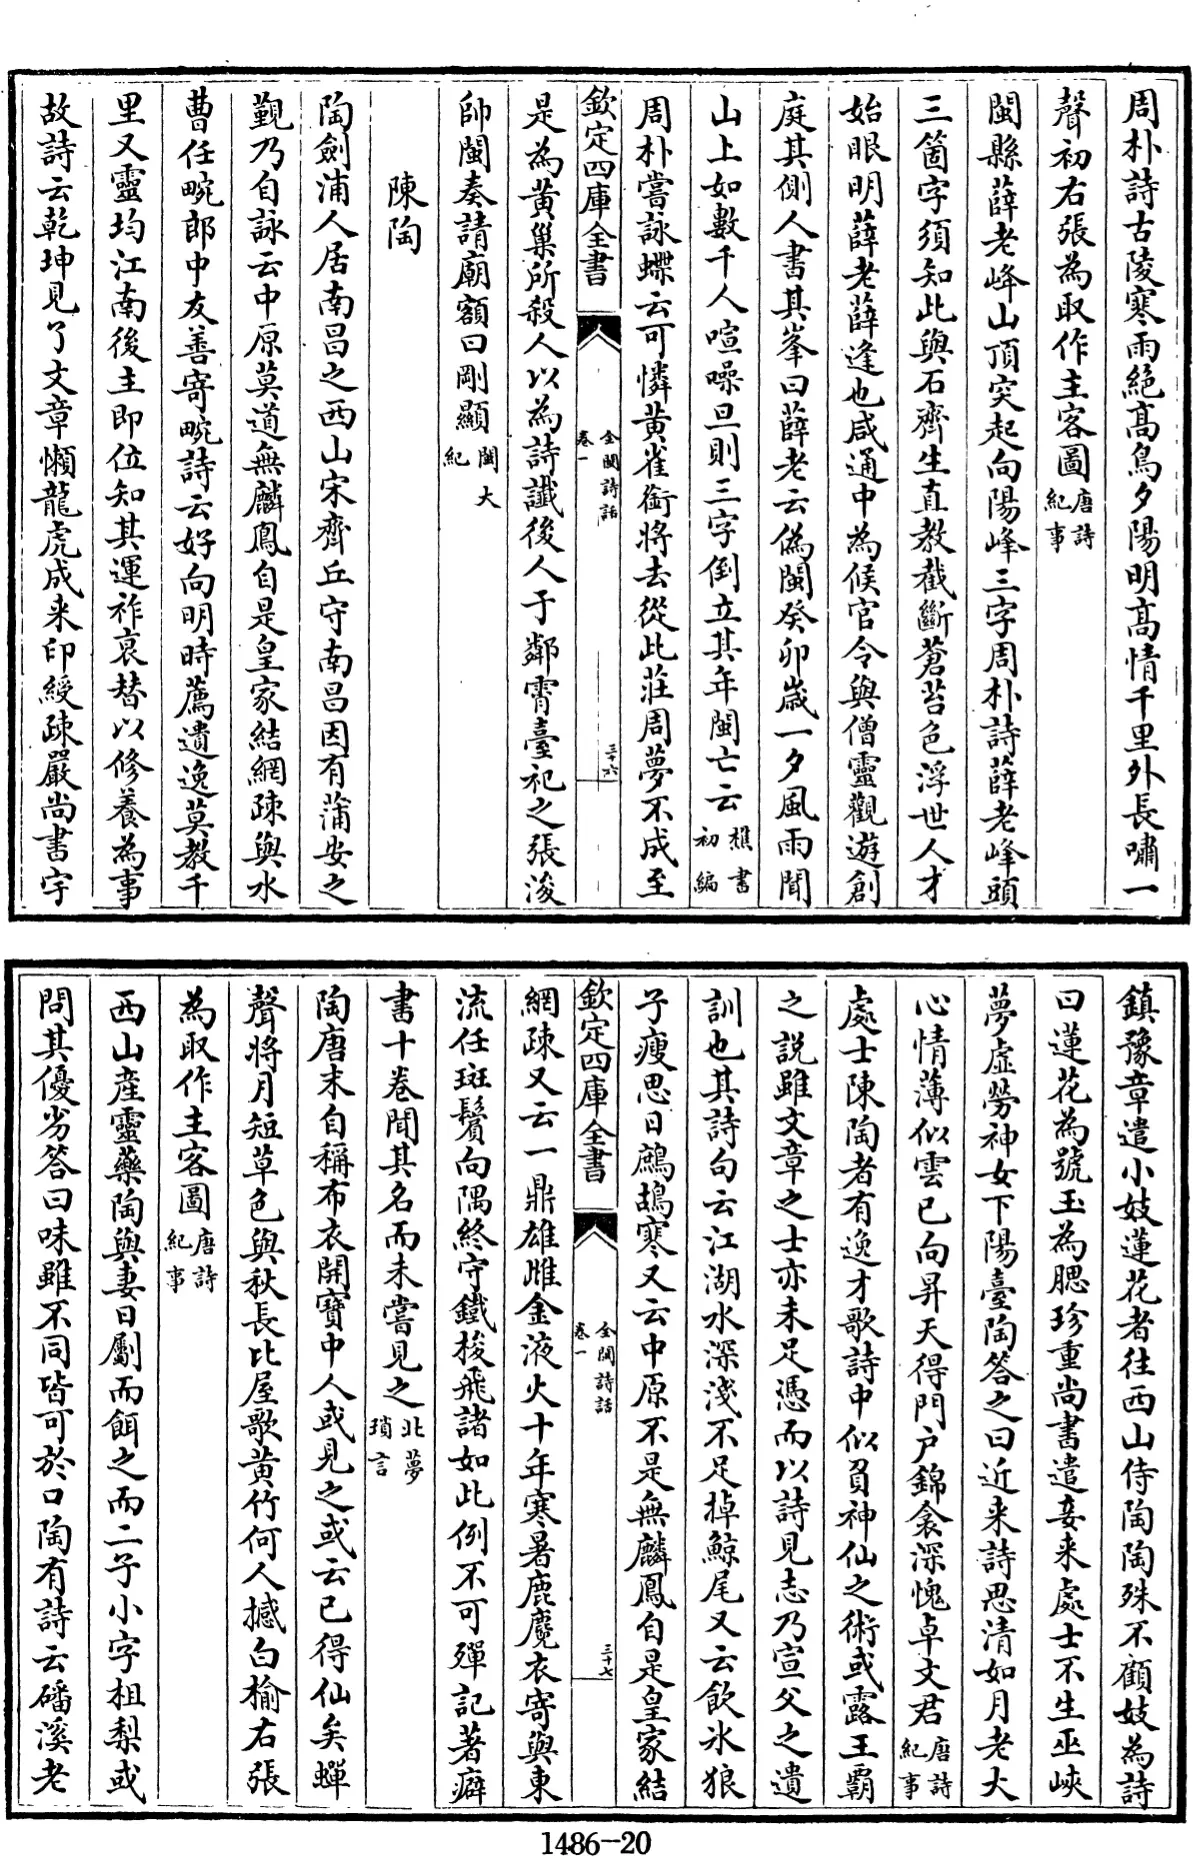 周朴詩古陵寒雨絶高鳥夕陽明高情千里外長嘯一
聲初右張為取作主客圖唐詩紀事
閩縣薛老峰山頂突起向陽峰三字周朴詩薛老峰頭
三箇字須知此與石齊生直教截斷蒼苔色浮世人才
始眼明薛老薛逢也咸通中為候官令與僧靈觀遊創
庭其側人書其峯曰薛老云偽閩癸卯歲一夕風雨聞
山上如數千人喧噪旦則三字倒立其年閩亡云樵書初編
周朴嘗詠蝶云可憐黄雀銜將去從此莊周夢不成至
欽定四庫全書
全閩詩話
卷一
三十六
是為黄巢所殺人以為詩讖後人于鄰霄臺祀之張浚
帥閩奏請廟額曰剛顯閩大紀
陳陶
陶劍浦人居南昌之西山宋齊丘守南昌因有蒲安之
覲乃自詠云中原莫道無麟鳳自是皇家結網疎與水
曹任畹郎中友善寄畹詩云好向明時薦遺逸莫教千
里又靈均江南後主即位知其運祚衰替以修養為事
故詩云乾坤見了文章懶龍虎成来印綬疎嚴尚書宇
鎮豫章遣小妓蓮花者往西山侍陶陶殊不顧妓為詩
曰蓮花為號玉為腮珍重尚書遣妾来處士不生巫峽
夢虛勞神女下陽臺陶答之曰近来詩思清如月老大
心情薄似雲已向昇天得門户錦衾深愧卓文君唐詩紀事
處士陳陶者有逸才歌詩中似負神仙之術或露王霸
之説雖文章之士亦未足憑而以詩見志乃宣父之遺
訓也其詩句云江湖水深淺不足掉鯨尾又云飲氷狼
子瘦思日鷓鴣寒又云中原不是無麟鳳自是皇家結
欽定四庫全書
全閩詩話
卷一
三十七
網疎又云一鼎雄雌金液火十年寒暑鹿麑衣寄與東
流任斑鬢向隅終守鐵梭飛諸如此例不可殫記著癖
書十卷聞其名而未嘗見之北夢瑣言
陶唐末自稱布衣開寶中人或見之或云已得仙矣蟬
聲將月短草色與秋長比屋歌黄竹何人撼白榆右張
為取作主客圖唐詩紀事
西山産靈藥陶與妻日劚而餌之而二子小字柤梨或
問其優劣答曰味雖不同皆可於口陶有詩云磻溪老
1486-20